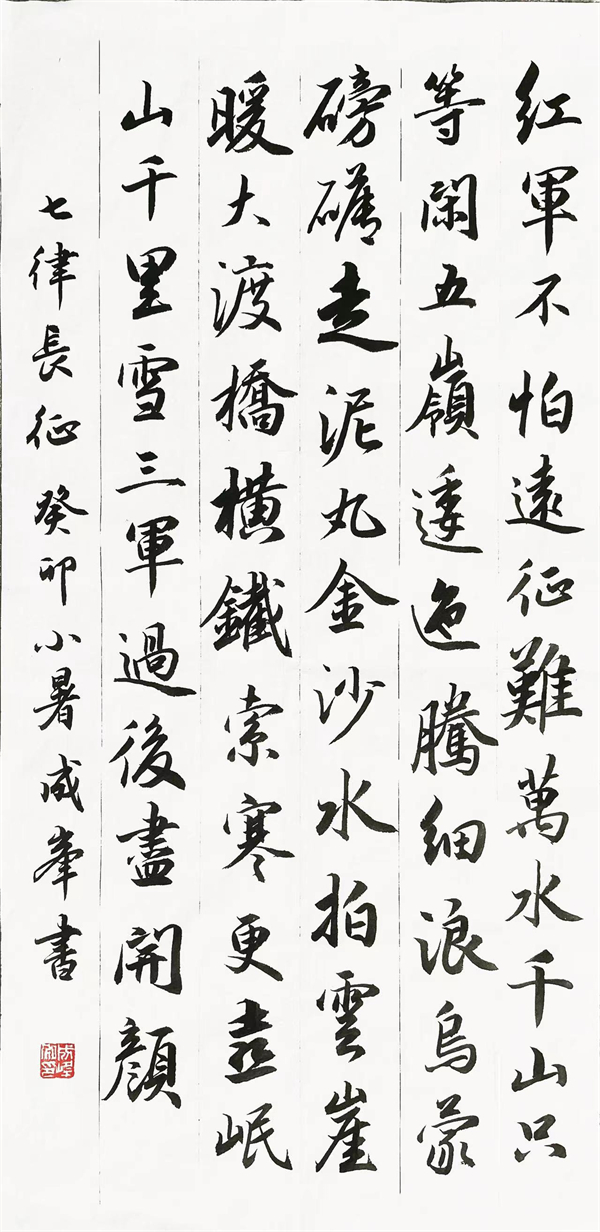 紅軍不怕遠征難萬水千山只
等閑五嶺逶迤騰細浪烏蒙
磅礴走泥丸金沙水拍雲崖
暖大渡橋橫鐵索寒更喜岷
山千里雪三軍過後盡開顏
七律長征癸卯小暑成峯書